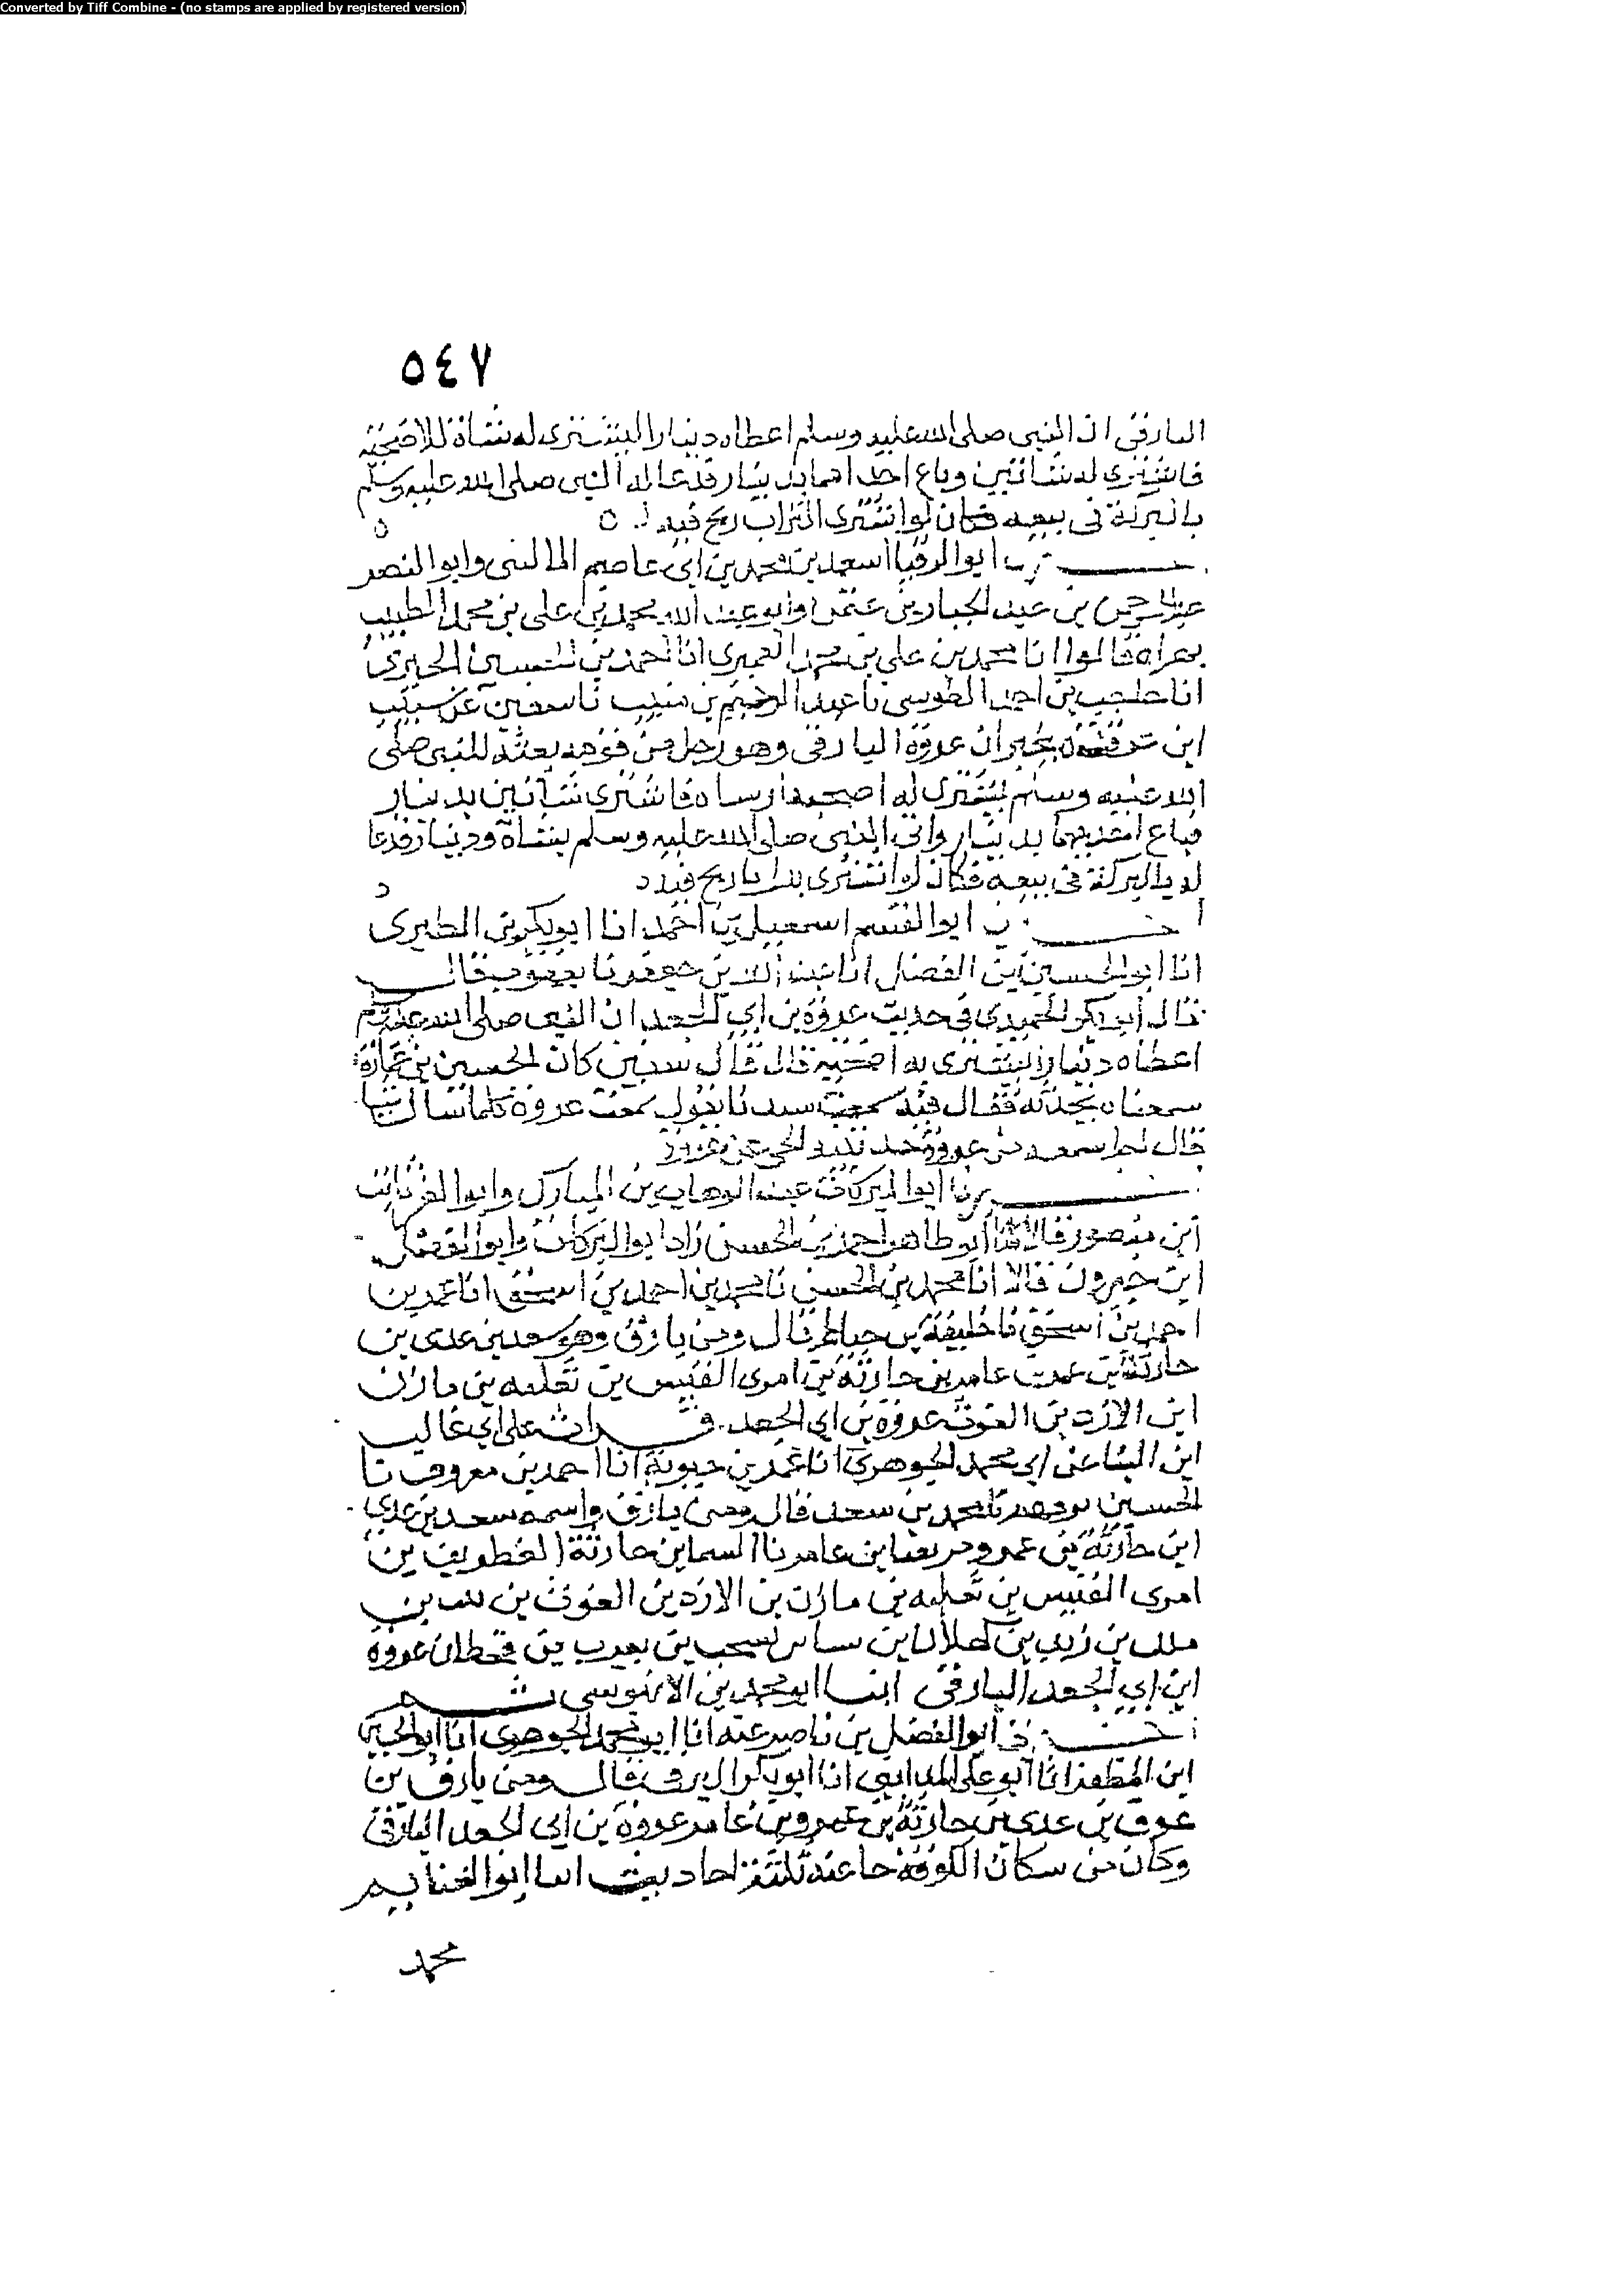 Converted by Tiff Combine - (no stamps are applied by registered version)
٥٤٧
البارقى ان النبى صلى الله عليه وسلم اعطاه دينارا ليشترى له شاة للاضحية
فاشترى له شاتين وباع احداهما بدينار فدعا له النبى صلى الله عليه وسلم
بالبركة فى بيعه فكان لو اشترى التراب ربح فيه
ابو الوفا اسعد بن محمد بن ابى عاصم المالينى وابو النصر
عبد الرحمن بن عبد الجبار بن عثمن وابو عبد الله محمد بن على بن محمد الطبيب
بهراه قالوا انا محمد بن على بن محمد العميرى انا احمد بن الحسين الحيرى
انا حاجب بن احمد الطوسى نا عبد الرحيم بن منيب نا سفين عن شبيب
ابن غرقده يخبر ان عروة البارقى وهو رجل من قومه بعثه النبى صلى
الله عليه وسلم ليشترى له اضحية او شاه فاشترى شاتين بدينار
فباع احديهما بدينار واتى النبى صلى الله عليه وسلم بشاة ودينار فدعا
له بالبركة فى بيعه فكان لو اشترى ترابا ربح فيه
ابو القسم اسمعيل بن احمد انا ابو بكر بن الطبرى
انا ابو الحسين بن الفضل انا عبد الله بن جعفر نا يعقوب قال
قال ابو بكر الحميدى فى حديث عروة بن ابى الجعد ان النبى صلى الله عليه وسلم
اعطاه دينارا ليشترى به اضحيه قال قال سفين كان الحسن بن عمارة
سمعناه يحدثه فقال فيه سمعت شبيبا يقول سمعت عروة فلما سالت شبيبا
قال لم اسمعه من عروة حدثنيه الحى عن عروة
ابو البركات عبد الوهاب بن المبارك وابو العز ثابت
ابن منصور قالا انا ابو طاهر احمد بن الحسن زاد ابو البركات وابو الفضل
ابن خيرون قالا انا محمد بن الحسن نا محمد بن احمد بن اسحق انا عمر بن
احمد بن اسحق نا خليفة بن خياط قال ومن بارق وهو سعد بن عدى بن
حارثة بن عمرو بن عامر بن حارثة بن امرى القيس بن ثعلبه بن مازن
ابن الازد بن الغوث عروة بن ابى الجعد. قرات على ابى غالب
ابن البنا عن ابى محمد الجوهرى انا محمد بن حيوية انا احمد بن معروف نا
الحسين نا محمد بن سعد قال ومن بارق واسمه سعد بن عدى
ابن حارثة بن عمرو مزيقيا بن عامر ما السما بن حارثة الغطريف بن
امرى القيس بن ثعلبه بن مازن بن الازد بن الغوث بن نبت بن
ملك بن زيد بن كهلان بن سبا بن يشجب بن يعرب بن قحطان عروة
ابن ابى الجعد البارقى انبا ابو محمد بن الابنوسى ثم
ابو الفضل بن ناصر عنه انا ابو محمد الجوهرى انا ابو الحسين
ابن المظفر انا ابو على المداينى انا ابو بكر البرقى قال ومن بارق بن
عوف بن عدى بن حارثة بن عمرو بن عامر عروة بن ابى الجعد البارقى
وكان من سكان الكوفة جا عنه ثلثة احاديث انبا ابو الغنايم
محمد